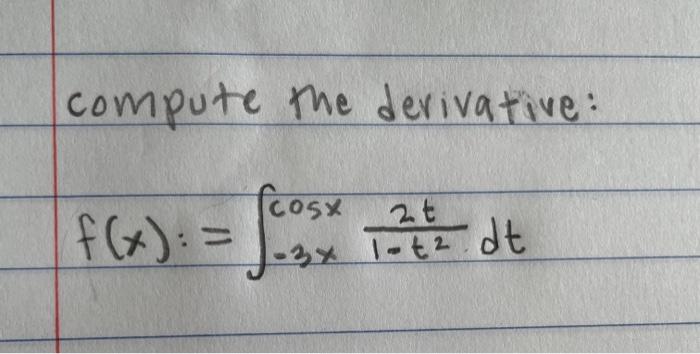 compute the derivative:
f(x):= ∫_{-3x}^{cosx} \frac{2t}{1-t^2} dt